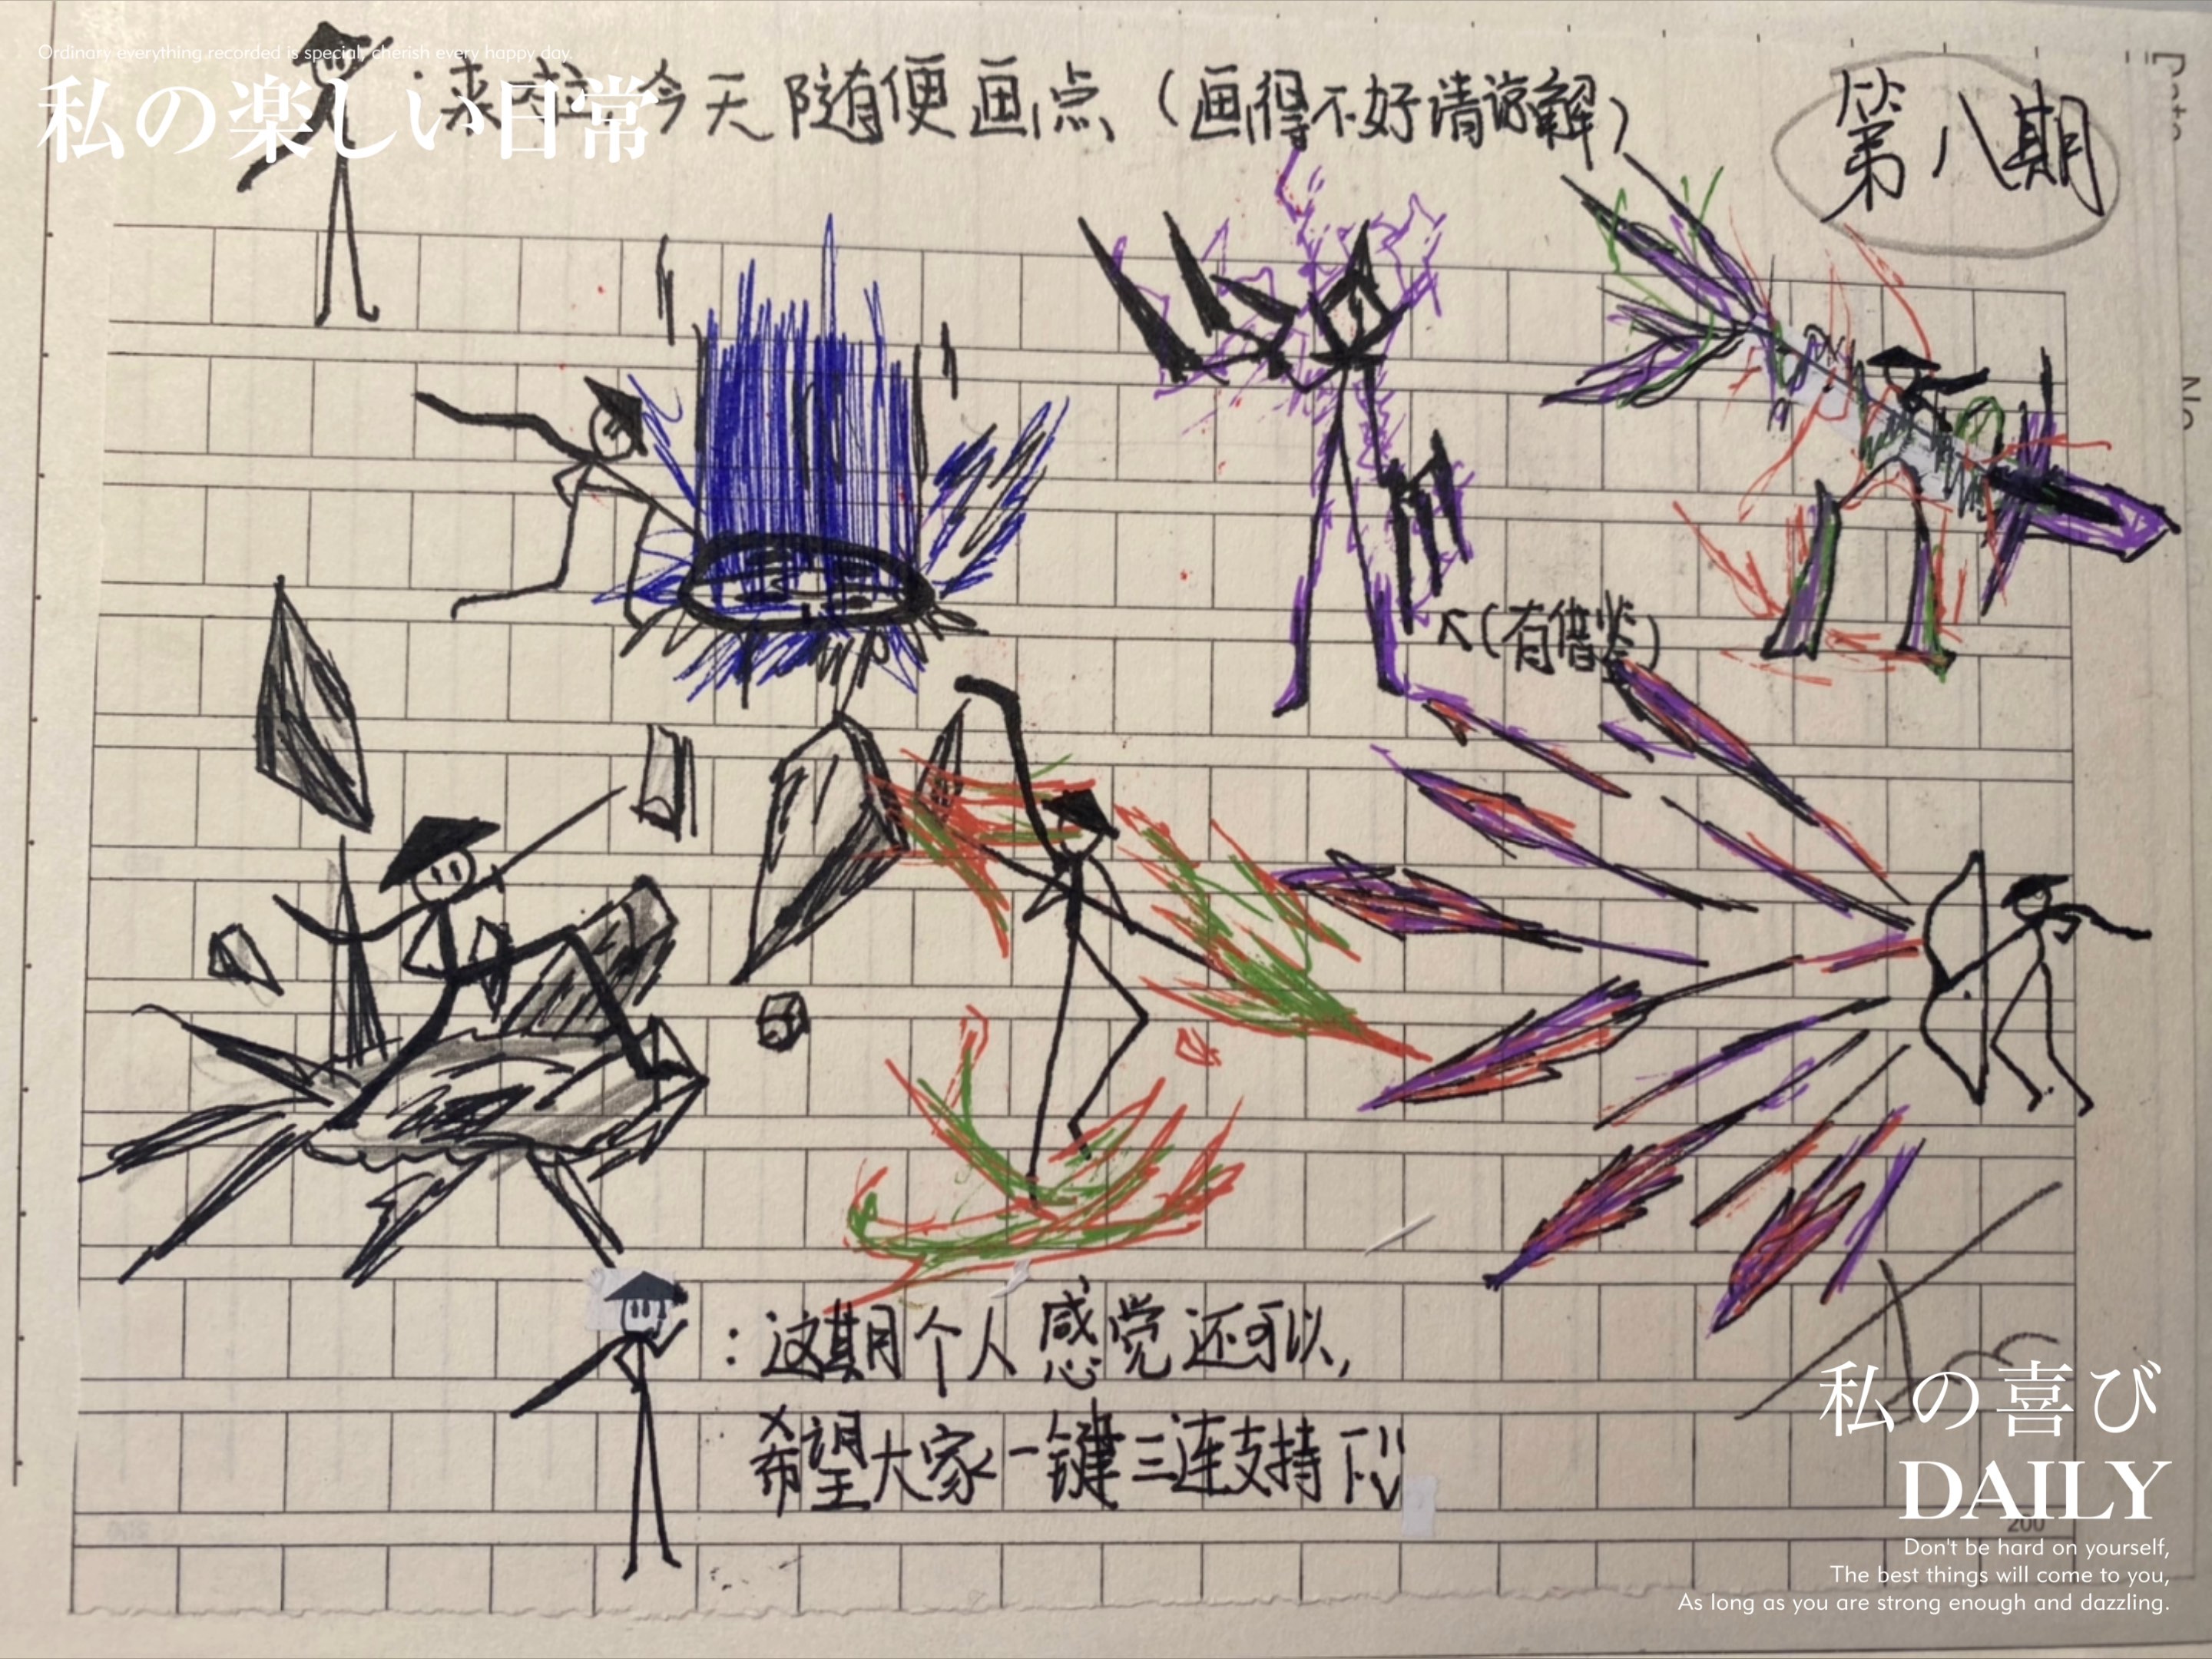 Ordinary everything recorded is special, cherish every happy day.
私の楽しい日常
:来啦今天随便画点(画得不好请谅解)
第八期
(有借鉴)
:这期个人感觉还可以,
希望大家一键三连支持下!!
私の喜び
DAILY
200
Don't be hard on yourself,
The best things will come to you,
As long as you are strong enough and dazzling.